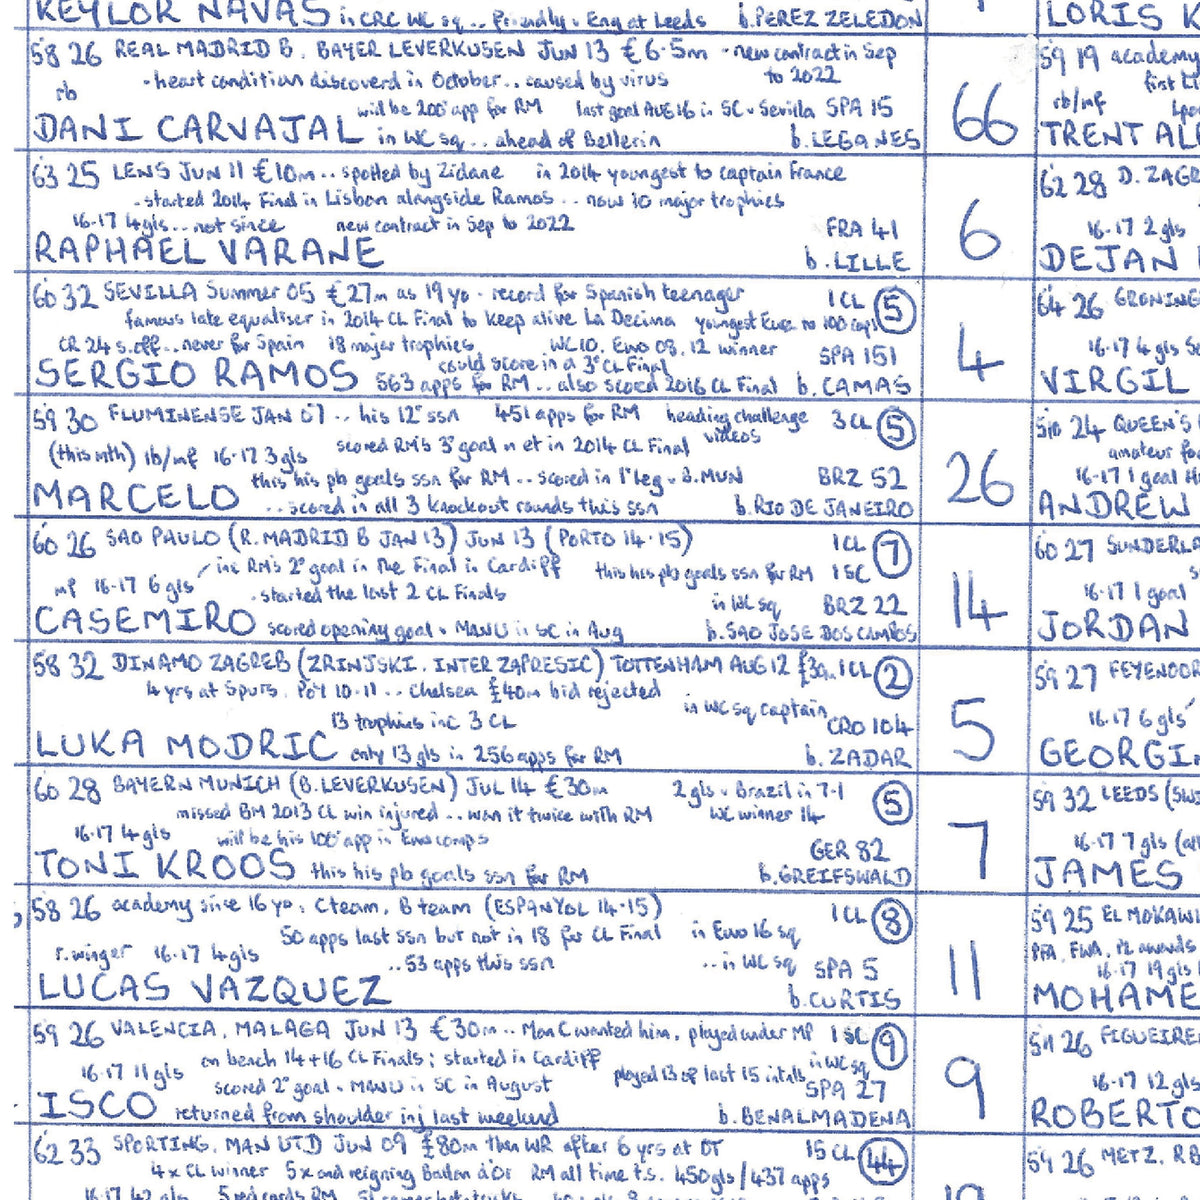 KEYLOR NAVAS in CRC WC sq .. friendly v Eng at Leeds b. PEREZ ZELEDON
LORIS K
58 26 REAL MADRID B. BAYER LEVERKUSEN JUN 13 €6.5m - new contract in Sep
- heart condition discoverd in October .. caused by virus to 2022
rb
will be 200 app for RM last goal AUG 16 in SC v Sevilla SPA 15
DANI CARVAJAL in WC sq .. ahead of Bellerin b. LEGANES
66
59 19 academy
first
rb/mf
TRENT AL
63 25 LENS JUN 11 €10m .. spotted by Zidane in 2014 youngest to captain France
- started 2014 Final in Lisbon alongside Ramos .. now 10 major trophies
16-17 4gls .. not since new contract in Sep to 2022 FRA 41
RAPHAEL VARANE b. LILLE
6
62 28 D. ZAGR
16-17 2 gls
DEJAN
60 32 SEVILLA Summer 05 €27m as 19 yo - record for Spanish teenager 1 CL 5
famous late equaliser in 2014 CL Final to keep alive La Decima youngest Euro to 100 caps
CR 24 s.off .. never for Spain 18 major trophies WC10, Euro 08, 12 winner SPA 151
could score in a 3° CL Final
SERGIO RAMOS 563 apps for RM .. also scored 2016 CL Final b. CAMAS
4
64 26 GRONING
16-17 4 gls
VIRGIL
59 30 FLUMINENSE JAN 07 .. his 12° ssn 451 apps for RM heading challenge videos 3 CL 5
scored RM's 3° goal in et in 2014 CL Final
(this mth) lb/mf 16-17 3 gls
this his pb goals ssn for RM .. scored in 1° leg v B.MUN BRZ 52
MARCELO .. scored in all 3 knockout rounds this ssn b. RIO DE JANEIRO
26
24 QUEEN'S
amateur
16-17 1 goal
ANDREW
60 26 SAO PAULO (R. MADRID B JAN 13) JUN 13 (PORTO 14-15) 1 CL 7
inc RM's 2° goal in the Final in Cardiff this his pb goals ssn for RM 1 SC
mf 16-17 6 gls - started the last 2 CL Finals in WC sq BRZ 22
CASEMIRO scored opening goal v MANU in SC in Aug b. SAO JOSE DOS CAMPOS
14
60 27 SUNDERLA
16-17 1 goal
JORDAN
58 32 DINAMO ZAGREB (ZRINJSKI, INTER ZAPRESIC) TOTTENHAM AUG 12 £30m 1 CL 2
4 yrs at Spurs. PoY 10-11 .. Chelsea £40m bid rejected in WC sq captain
13 trophies inc 3 CL CRO 104
LUKA MODRIC only 13 gls in 256 apps for RM b. ZADAR
5
59 27 FEYENOOR
16-17 6 gls
GEORGI
60 28 BAYERN MUNICH (B. LEVERKUSEN) JUL 14 €30m 2 gls v Brazil in 7-1 5
missed BM 2013 CL win injured .. won it twice with RM WC winner 14
16-17 4 gls will be his 100 app in Euro comps GER 82
TONI KROOS this his pb goals ssn for RM b. GREIFSWALD
7
59 32 LEEDS
16-17 7 gls
JAMES
58 26 academy since 16 yo, C team, B team (ESPANYOL 14-15) 1 CL 8
50 apps last ssn but not in 18 for CL Final in Euro 16 sq
r. winger 16-17 4 gls .. 53 apps this ssn .. in WC sq SPA 5
LUCAS VAZQUEZ b. CURTIS
11
59 25 EL MOKAW
PFA, FWA, PL awards
16-17 19 gls
MOHAME
59 26 VALENCIA, MALAGA JUN 13 €30m .. Man C wanted him, played under MP 1 SC 9
on bench 14+16 CL Finals; started in Cardiff in WC sq
16-17 11 gls played 13 of last 15 intnls
scored 2° goal v MANU in SC in August SPA 27
ISCO returned from shoulder inj last weekend b. BENALMADENA
9
26 FIGUEIRE
16-17 12 gls
ROBERTO
62 33 SPORTING, MAN UTD JUN 09 £80m then WR after 6 yrs at OT 15 CL 44
4 x CL winner 5x and reigning Ballon d'Or RM all time t.s. 450 gls / 437 apps
16-17 42 gls 5 red cards RM
59 26 METZ, RB